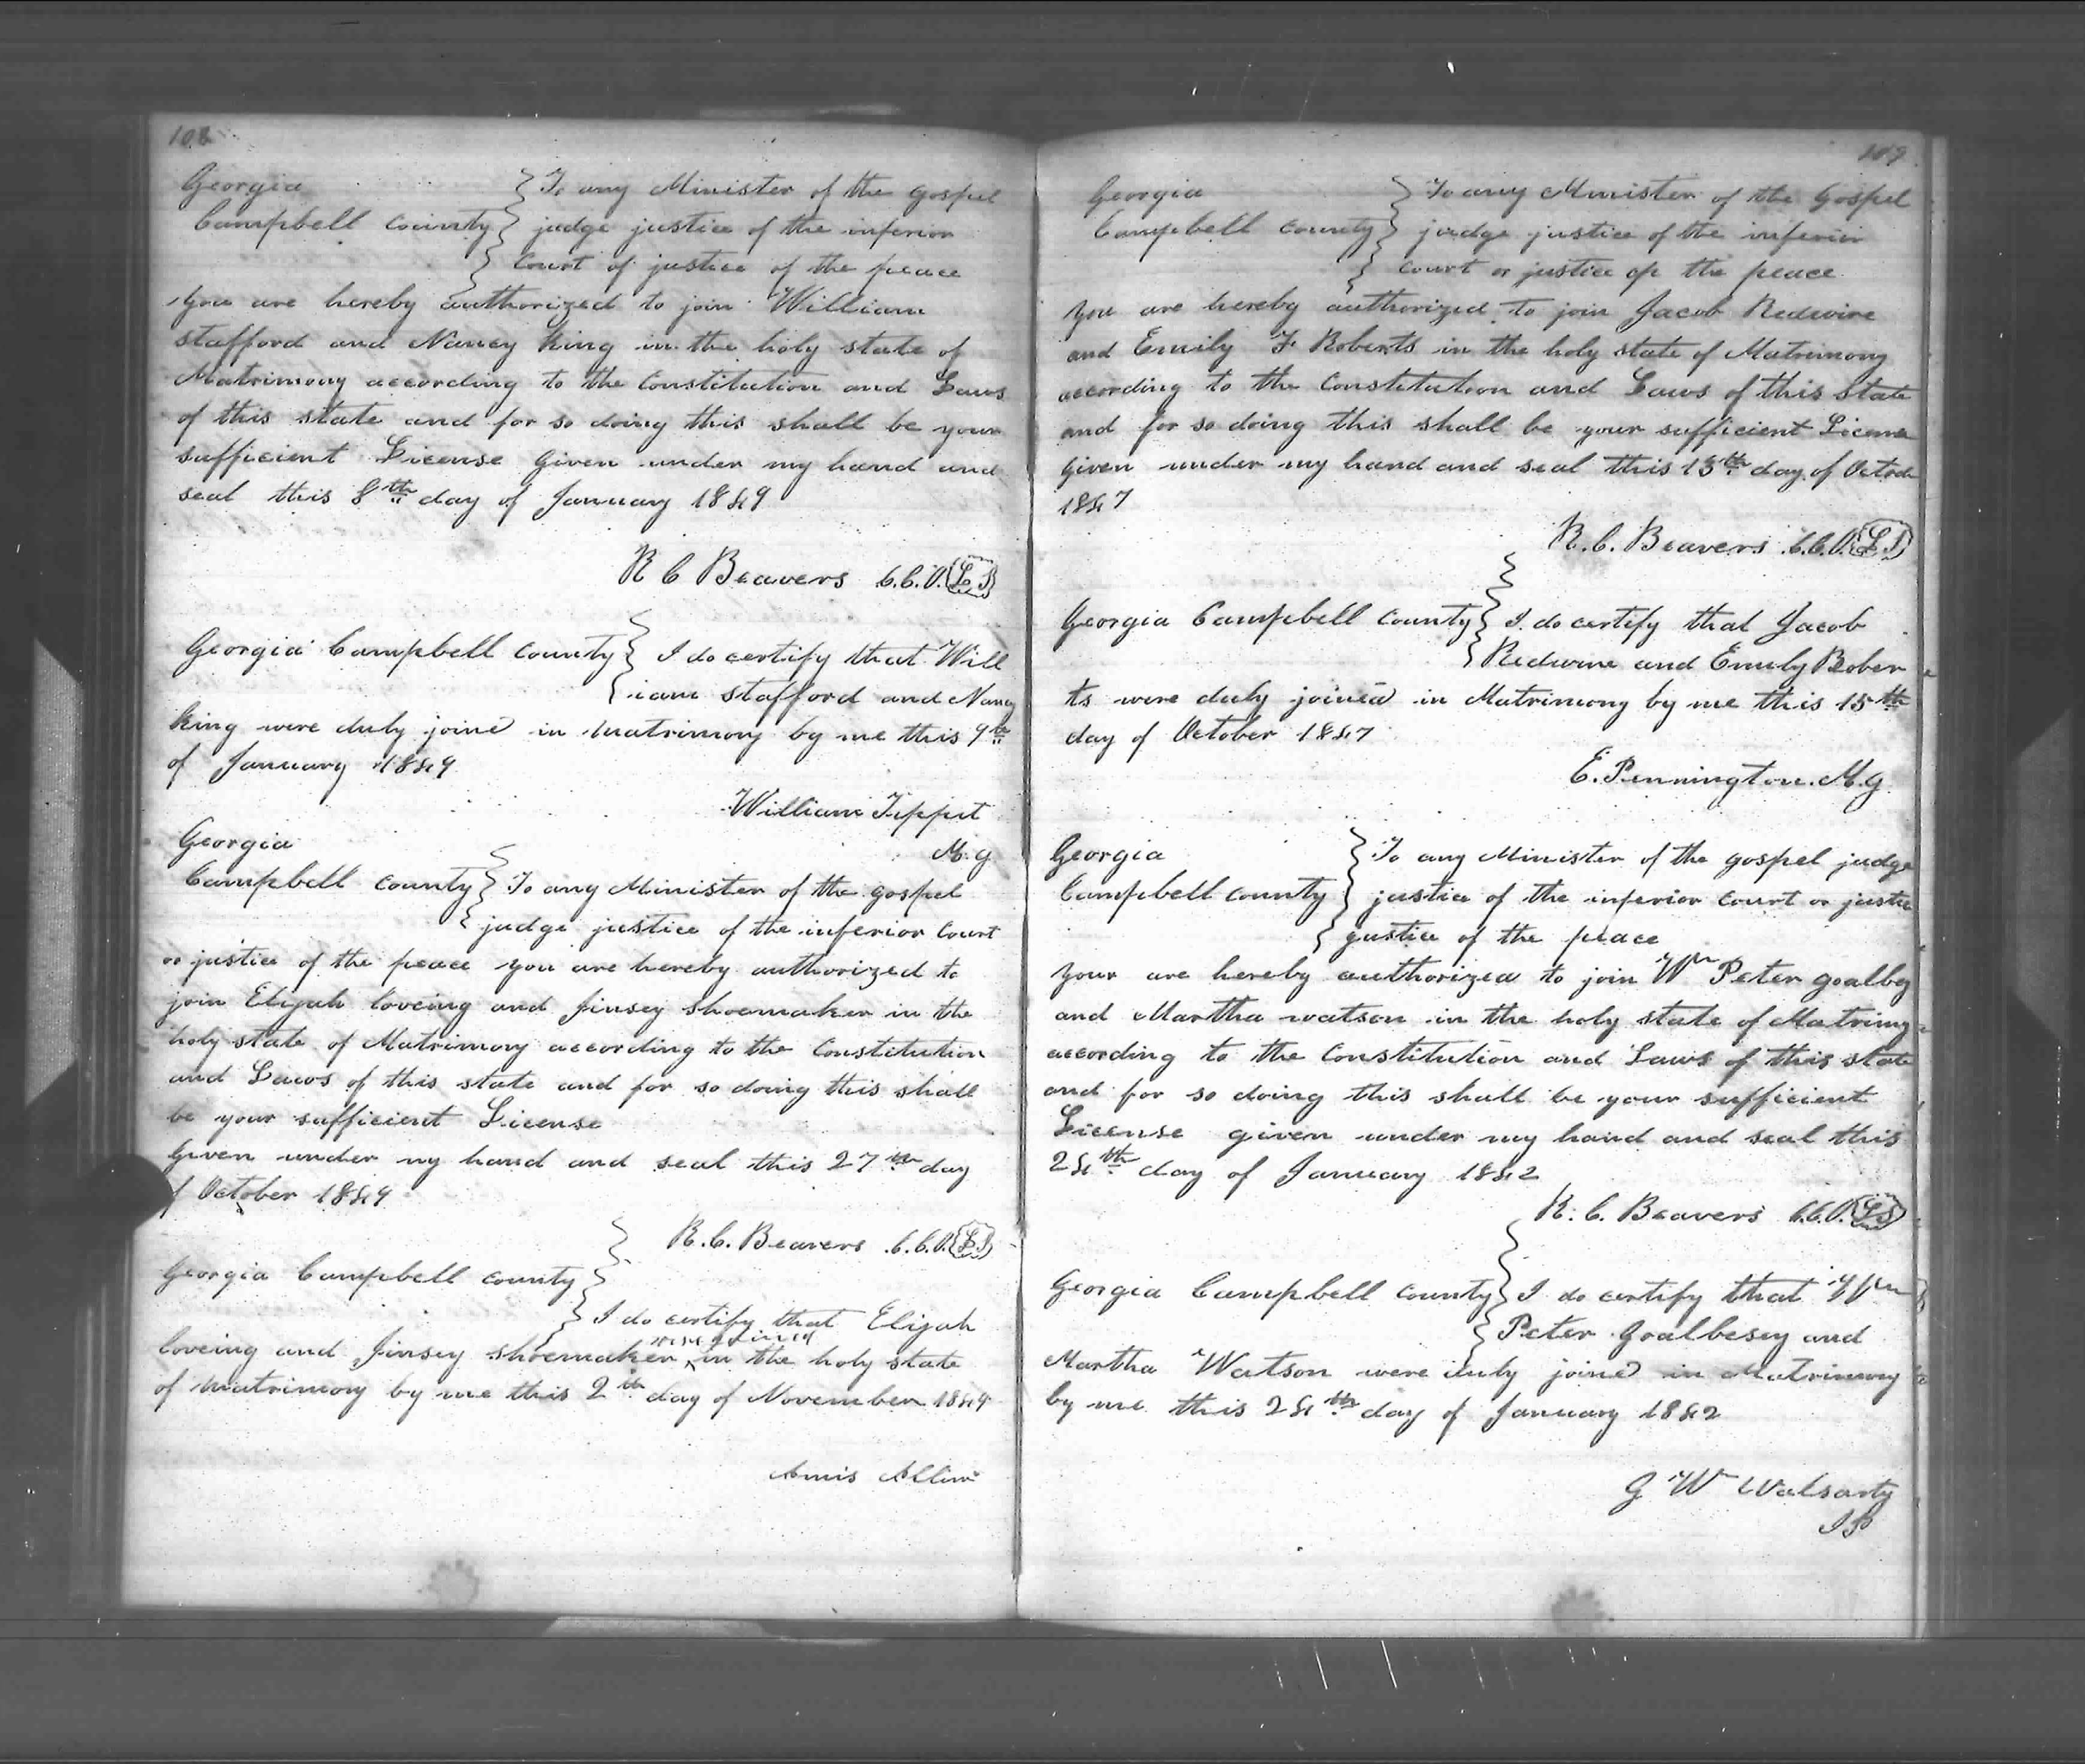 108
Georgia
Campbell County } To any Minister of the gospel
judge justice of the inferior
Court of justice of the peace
you are hereby authorized to join William
stafford and Nancy King in the holy state of
Matrimony according to the Constitution and Laws
of this state and for so doing this shall be your
sufficient License given under my hand and
seal this 8th day of January 1849
R C Beavers C.C.O. (L S)
Georgia Campbell County } I do certify that Will
iam stafford and Nancy
King were duly joined in matrimony by me this 9th
of January 1849
William Tippit
M.g
Georgia
Campbell County } To any Minister of the gospel
judge justice of the inferior Court
or justice of the peace you are hereby authorized to
join Elijah loveing and Jinsey shoemaker in the
holy state of Matrimony according to the Constitution
and Laws of this state and for so doing this shall
be your sufficient License
Given under my hand and seal this 27th day
of October 1849
R. C. Beavers C.C.O. (L S)
Georgia Campbell County }
I do certify that Elijah
were joined
loveing and Jinsey shoemaker ^ in the holy state
of matrimony by me this 2th day of November 1849
Amis
109
Georgia
Campbell County } To any Minister of the Gospel
judge justice of the inferior
court or justice of the peace
you are hereby authorized to join Jacob Redwine
and Emily F Roberts in the holy state of Matrimony
according to the Constitution and Laws of this State
and for so doing this shall be your sufficient License
given under my hand and seal this 15th day of Octob
1847
R. C. Beavers C.C.O. (L S)
Georgia Campbell County } I do certify that Jacob
Redwine and Emily Rober
ts were duly joined in Matrimony by me this 15th
day of October 1847
E. Pennington. M.g.
Georgia
Campbell County } To any Minister of the gospel judge
justice of the inferior Court or justice
justice of the peace
your are hereby authorized to join Wm Peter goalbey
and Martha watson in the holy state of Matrimy
according to the Constitution and Laws of this state
and for so doing this shall be your sufficient
License given under my hand and seal this
24th day of January 1842
R. C. Beavers C.C.O. (L S)
Georgia Campbell County } I do certify that Wm
Peter goalbesey and
Martha Watson were duly joined in Matrimony
by me this 24th day of January 1842
G W
J P